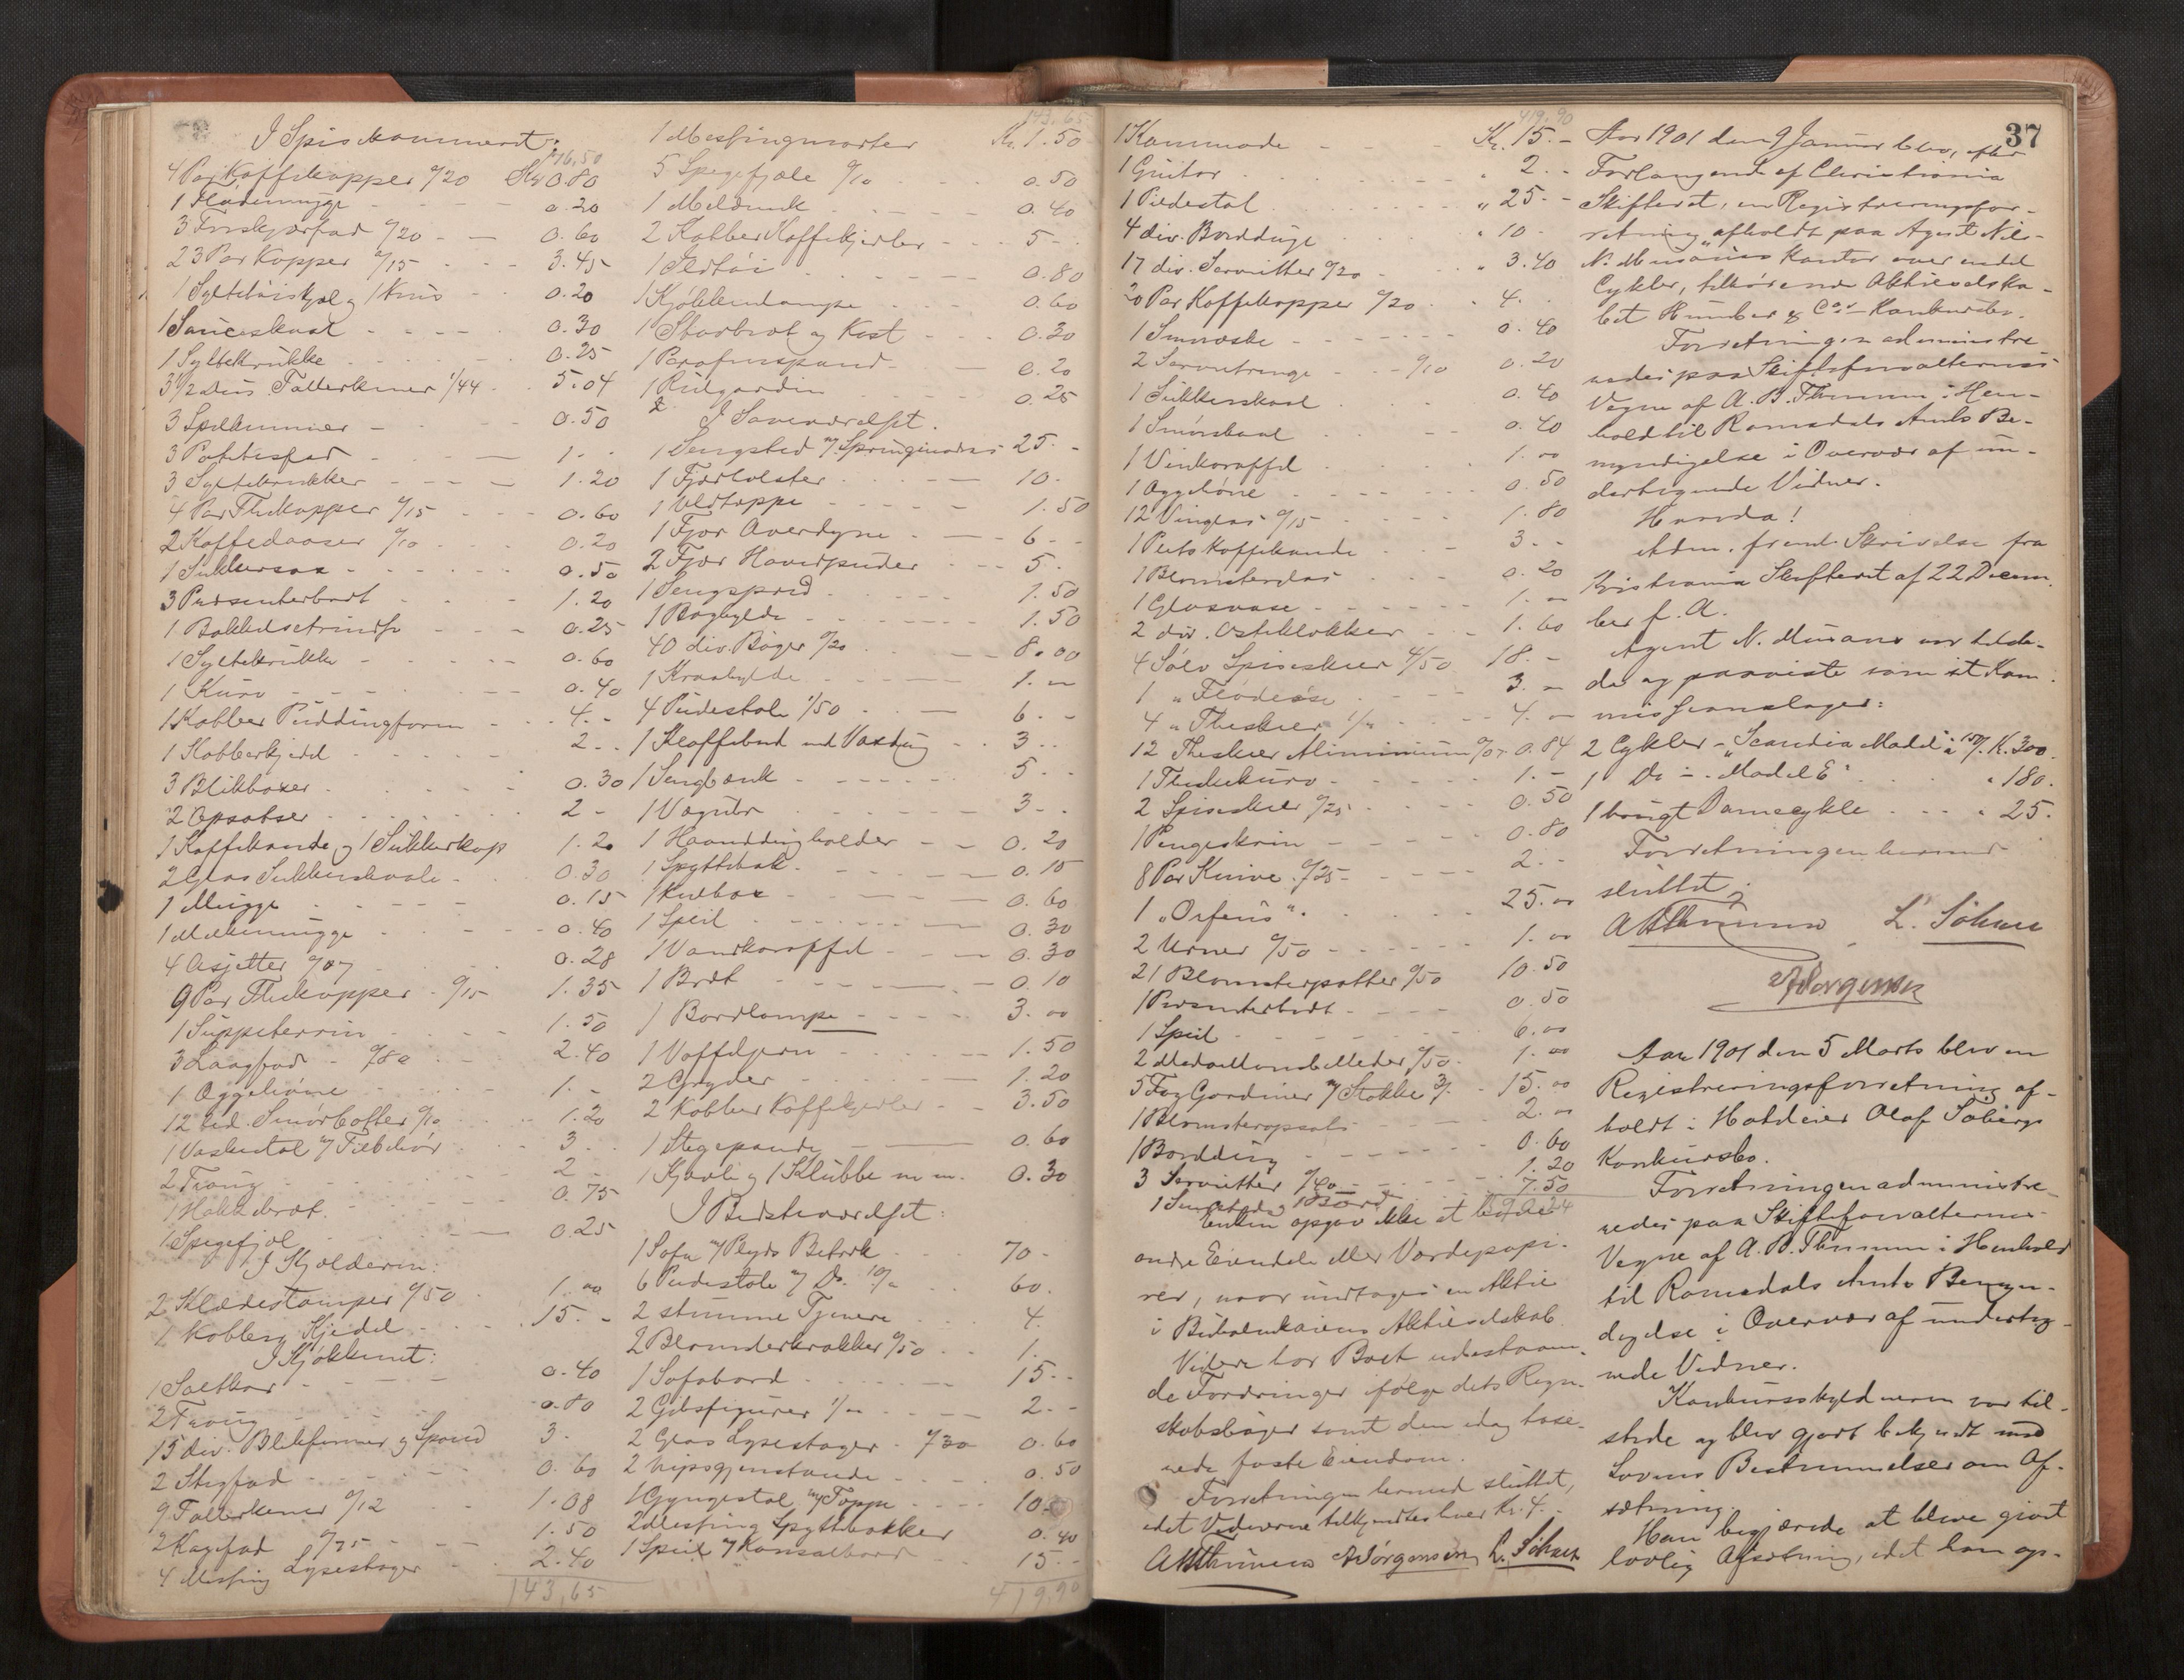 I Spiskammeret:
76,50
4 Par Kaffekopper 0/20 Kr 0.80
1 Flødemugge 0.20
3 0/20 0.60
23 Par Kopper 0/15 3.45
1 Syltetøiskjæl og 1 Krus 0.20
1 Sauceskaal 0.30
1 Syltekrukke 0.25
3 1/2 Dus Tallerkener 1/44 5.04
3 Spilkummer 0.50
3 Potetesfad 1.-
3 Syltekrukker 1.20
4 Par Thekopper 0/15 0.60
2 Kaffedaaser 0/10 0.20
1 Sukkersax 0.50
3 Presenterbret 1.20
1 0.25
1 Syltekrukke 0.60
1 Kurv 0.40
1 Kobber Puddingform 4.-
1 Kobberkjedel 2.-
3 Blikboxer 0.30
2 Opsatser 2-
1 Kaffekande og 1 Sukkerkop 1.20
2 Glas Sukkerskaale 0.30
1 Mugge 0.15
1 Melkemugge 0.40
4 Asjetter 0/07 0.28
9 Par Thekopper 0/15 1.35
1 Suppeterrin 1.50
3 Laagfad 0/80 2.40
1 Æggehøne 1.-
12 Smørbotter 0/10 1.20
1 Vaskestol m/ Tilbehør 3.
2 Traug 2-
1 Hakkebræt 0.75
1 Spegefjøl 0.25
I Kjælderen:
2 Klædestamper 0/50 1.00
1 Kobberg Kjedel 15.-
I Kjøkkenet:
1 Saltkar 0.40
2 Traug 0.80
15 div. Blikformer og Spand 3.
2 Stegfad 0.60
9 Tallerkener 0/12 1.08
2 Kagefad 0/75 1.50
4 Messing Lysestager 2.40
143,65
143.65
1 Messingmorter Kr. 1.50
5 Spegefjæle 0/10 0.50
1 Meldunk 0.40
2 Kobber Kaffekjedler 5-
1 Ildtøi 0.80
1 Kjøkkenlampe 0.60
1 Støvbræt og Kost 0.30
1 Parafinspand 0.20
1 Rulgardin 0.25
I Soveværelset.
1 Sengsted m/ Springmadras 25.-
1 Fjærbolster 10.
1 Uldtæppe 1.50
1 Fjær Overdyne 6-
2 Fjær Hovedpuder 5.
1 Sengspred 1.50
1 Boghylde 1.50
40 div. Bøger 0/20 8.00
1 Kraahylde 1.-
4 Pudestole 1/50 6.-
1 Kloffebord med Voxdug 3-
1 Sengbænk 5.-
1 Væguhr 3-
1 Haanddugholder 0.20
1 Spyttebak 0.15
1 Kulbox 0.60
1 Speil 0.30
1 Vandkaraffel 0.30
1 Bræt 0.10
1 Bordlampe 3.00
1 Vaffeljern 1.50
2 Gryder 1.20
2 Kobber Kaffekjedler 3.50
1 Stegepande 0.60
1 Kjævle og 1 Klubbe m m. 0.30
I Bedsteværelset:
1 Sofa m/ Plyds Betræk 70-
6 Pudestole m/ Do. 10/- 60.
2 stumme Tjenere 4.
2 Blomsterkrakker 0/50 1.
1 Sofabord 15.-
2 Gibsfigurer 1/- 2.-
2 Glas Lysestager 0/30 0.60
2 Nipsgjenstande 0.50
1 Gyngestol m/ Tæppe 10.-
2 Messing Spyttebakker 0.40
1 Speil m/ Konsolbord 15-
419.90
419.90
1 Kommode Kr. 15.-
1 Guitar " 2.-
1 Piedestal " 25.-
4 div. Bordduge " 10-
17 div. Servietter 0/20 " 3.40
20 Par Kaffekopper 0/20 4.
1 Smøræske 0.40
2 Servietringe 0/10 0.20
1 Sukkerskaal 0.40
1 Smørskaal 0.40
1 Vinkaraffel 1.00
1 Æggehøne 0.50
12 Vinglas 0/15 1.80
1 Plets Kaffekande 3.-
1 Blomsterglas 0.20
1 Glasvase 1.-
2 div. Osteklokker 1.60
4 Sølv Spiseskeer 4/50 18.-
1 " Flødeøse 3.-
4 " Theskeer 1/- 4.-
12 Theskeer Aluminium 0/07 0.84
1 Theskekurv 1.-
2 Spiseskeer 0/25 0.50
1 Pengeskrin 0.80
8 Par Knive 0/25 2.-
1 „Orfeus“. 25.00
2 Urner 0/50 1.00
21 Blomsterpotter 0/50 10.50
1 Presenterbret 0.50
1 Speil 6.00
2 0/50 1.00
5 Fag Gardiner m/ Stokke 3/- 15.00
1 Blomsteropsats 2.00
1 Borddug 0.60
3 Servietter 0/40 1.20
1 Bord 7.50
Enken opgav ikke at besidde
andre Eiendele eller Værdepapi-
rer, naar undtages en Aktie
i Aktieselskab.
Videre har Boet udestaaen-
de Fordringer ifølge dets Regn-
skabsbøger samt den idag taxe-
rede faste Eiendom.
Forretningen hermed sluttet,
idet Vidnerne tilkjendtes hver Kr. 4.-
A Thesen AJørgensen L. Solnes
37
Aar 1901 den 9 Januar blev, efter
Forlangende af Christiania
Skifteret, en Registreringsfor-
retning afholdt paa Agent Nils
N. Musæus Kontor over endel
Cykler, tilhørende Aktieselska-
bet Humber & Co's Konkursbo.
Forretningen administre-
redes paa Skifteforvalterens
Vegne af A. B. i Hen-
hold til Romsdals Amts Be-
myndigelse i Overvær af un-
dertegnede Vidner.
Hvorda!
Adm. freml. Skrivelse fra
Kristiania Skifteret af 22 Decem-
ber f. A.
Agent N. Musæus var tilste-
de og paaviste som et Kom-
missionslager:
2 Cykler - „Scandia Model“ à 150/- K. 300.
1 Do - Model E " 180.
1 brugt Damecykle " 25.
Forretningen hermed
sluttet.
L. Solnes
AJørgensen
Aar 1901 den 5 Marts blev en
Registreringsforretning af-
holdt i Hoteleier Olaf Søbergs
Konkursbo.
Forretningen administre-
redes paa Skifteforvalterens
Vegne af A. B. i Henhold
til Romsdals Amts Bemyn-
digelse i Overvær af underteg-
nede Vidner.
Konkursskyldneren var til-
stede og blev gjort bekjendt med
Lovens Bestemmelser om Af-
sætning.
Han begjærede at blive givet
lovlig Afsætning, idet han op-